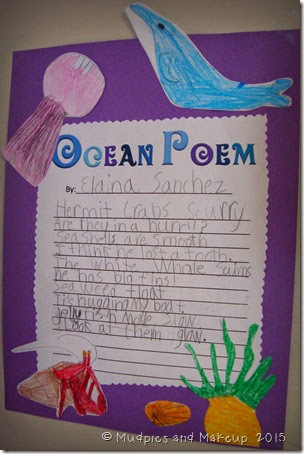 OCEAN POEM
By: Elaina Sanchez
Hermit Crabs Scurry
Are they in a hurrey?
Sea shells are smooth
I think he lost a tooth.
The white Whale Swims
he has big fins!
Sea weed float
It's hugging my boat
Jelly fish Move slow
Look at them glow.
© Mudpies and Makeup 2015